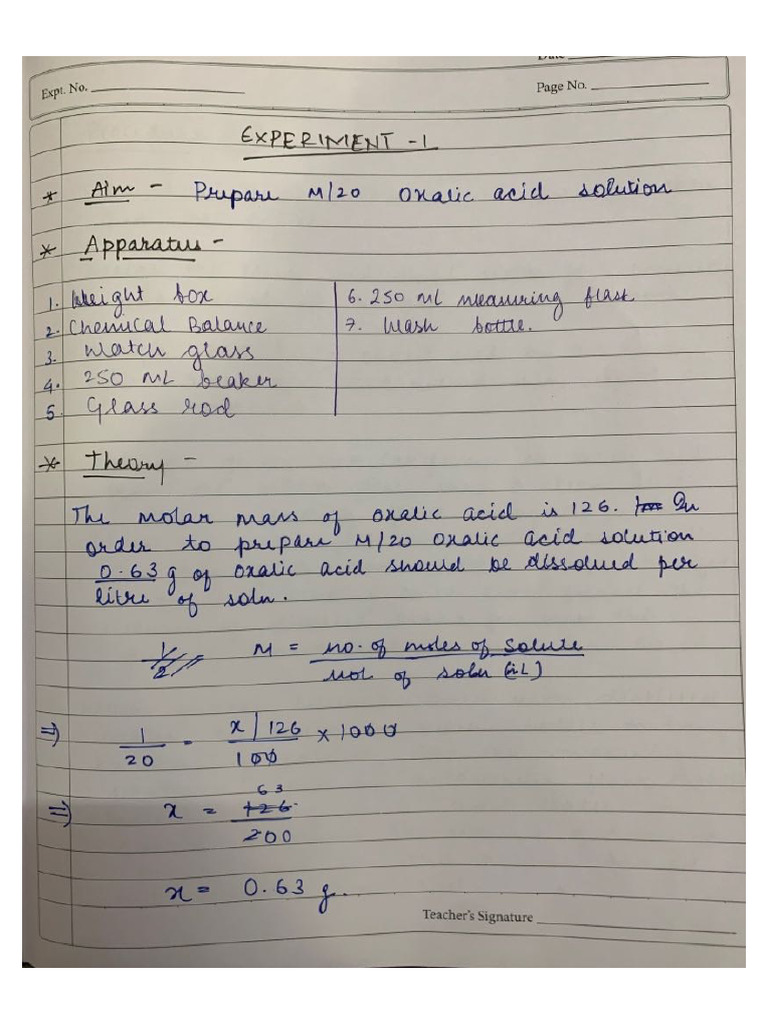 Date
Expt. No.
Page No.
EXPERIMENT - 1
* Aim - Prepare M/20 Oxalic acid solution
* Apparatus -
1. Weight box
2. Chemical Balance
3. Watch glass
4. 250 ML beaker
5. Glass rod
6. 250 ML measuring flask
7. Wash bottle.
* Theory -
The molar mass of oxalic acid is 126. In
order to prepare M/20 oxalic acid solution
0.63 g of oxalic acid should be dissolved per
litre of soln.
1/2 M = no. of moles of solute
vol of soln (in L)
⇒ 1/20 = x/126 / 100 × 1000
⇒ x = 126 63 / 200
x = 0.63 g.
Teacher's Signature